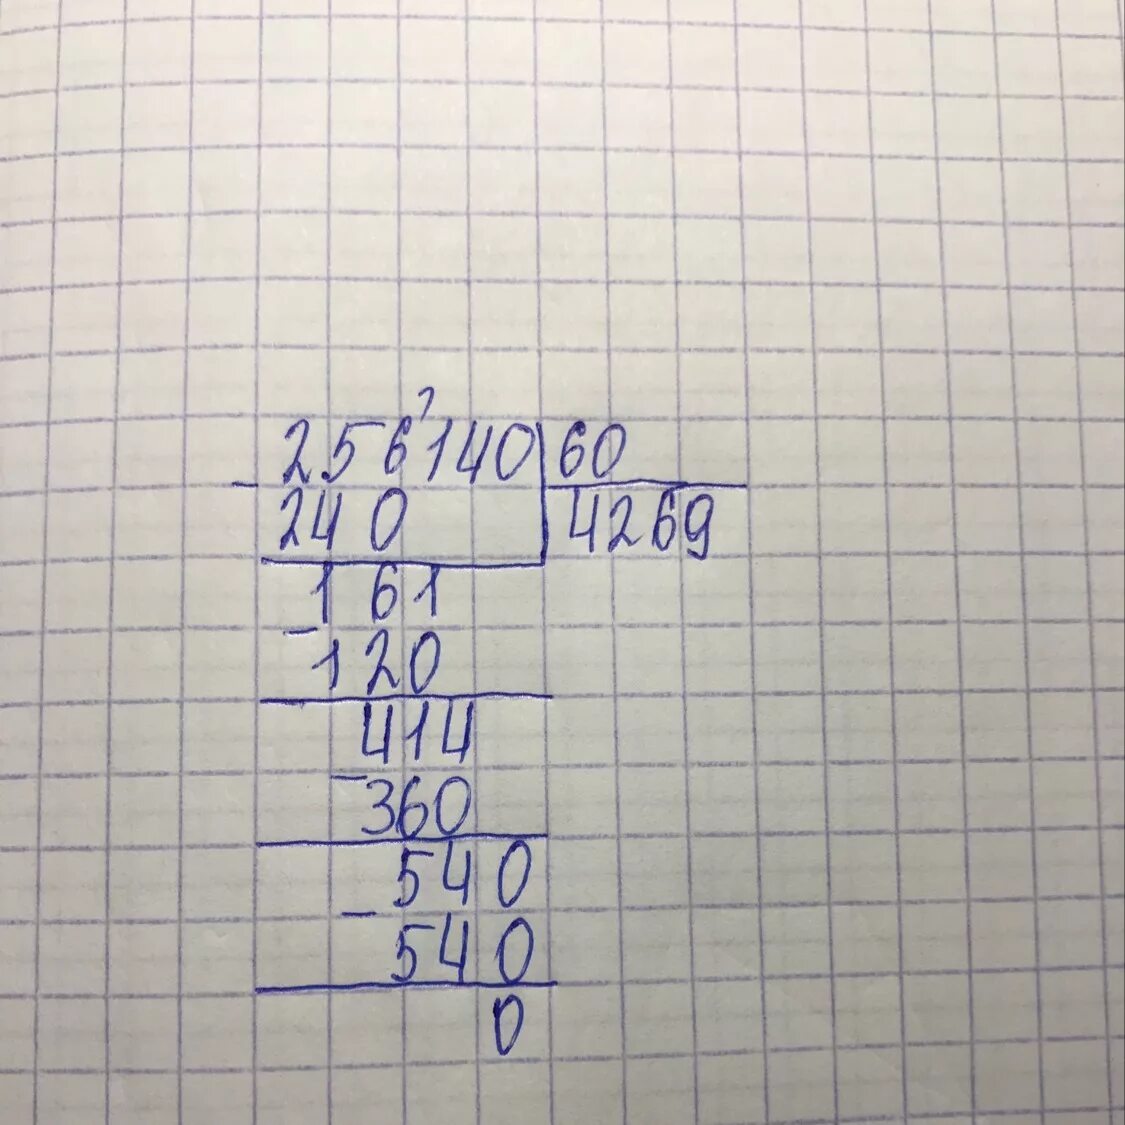 256140 60
240 4269
161
120
414
360
540
540
0